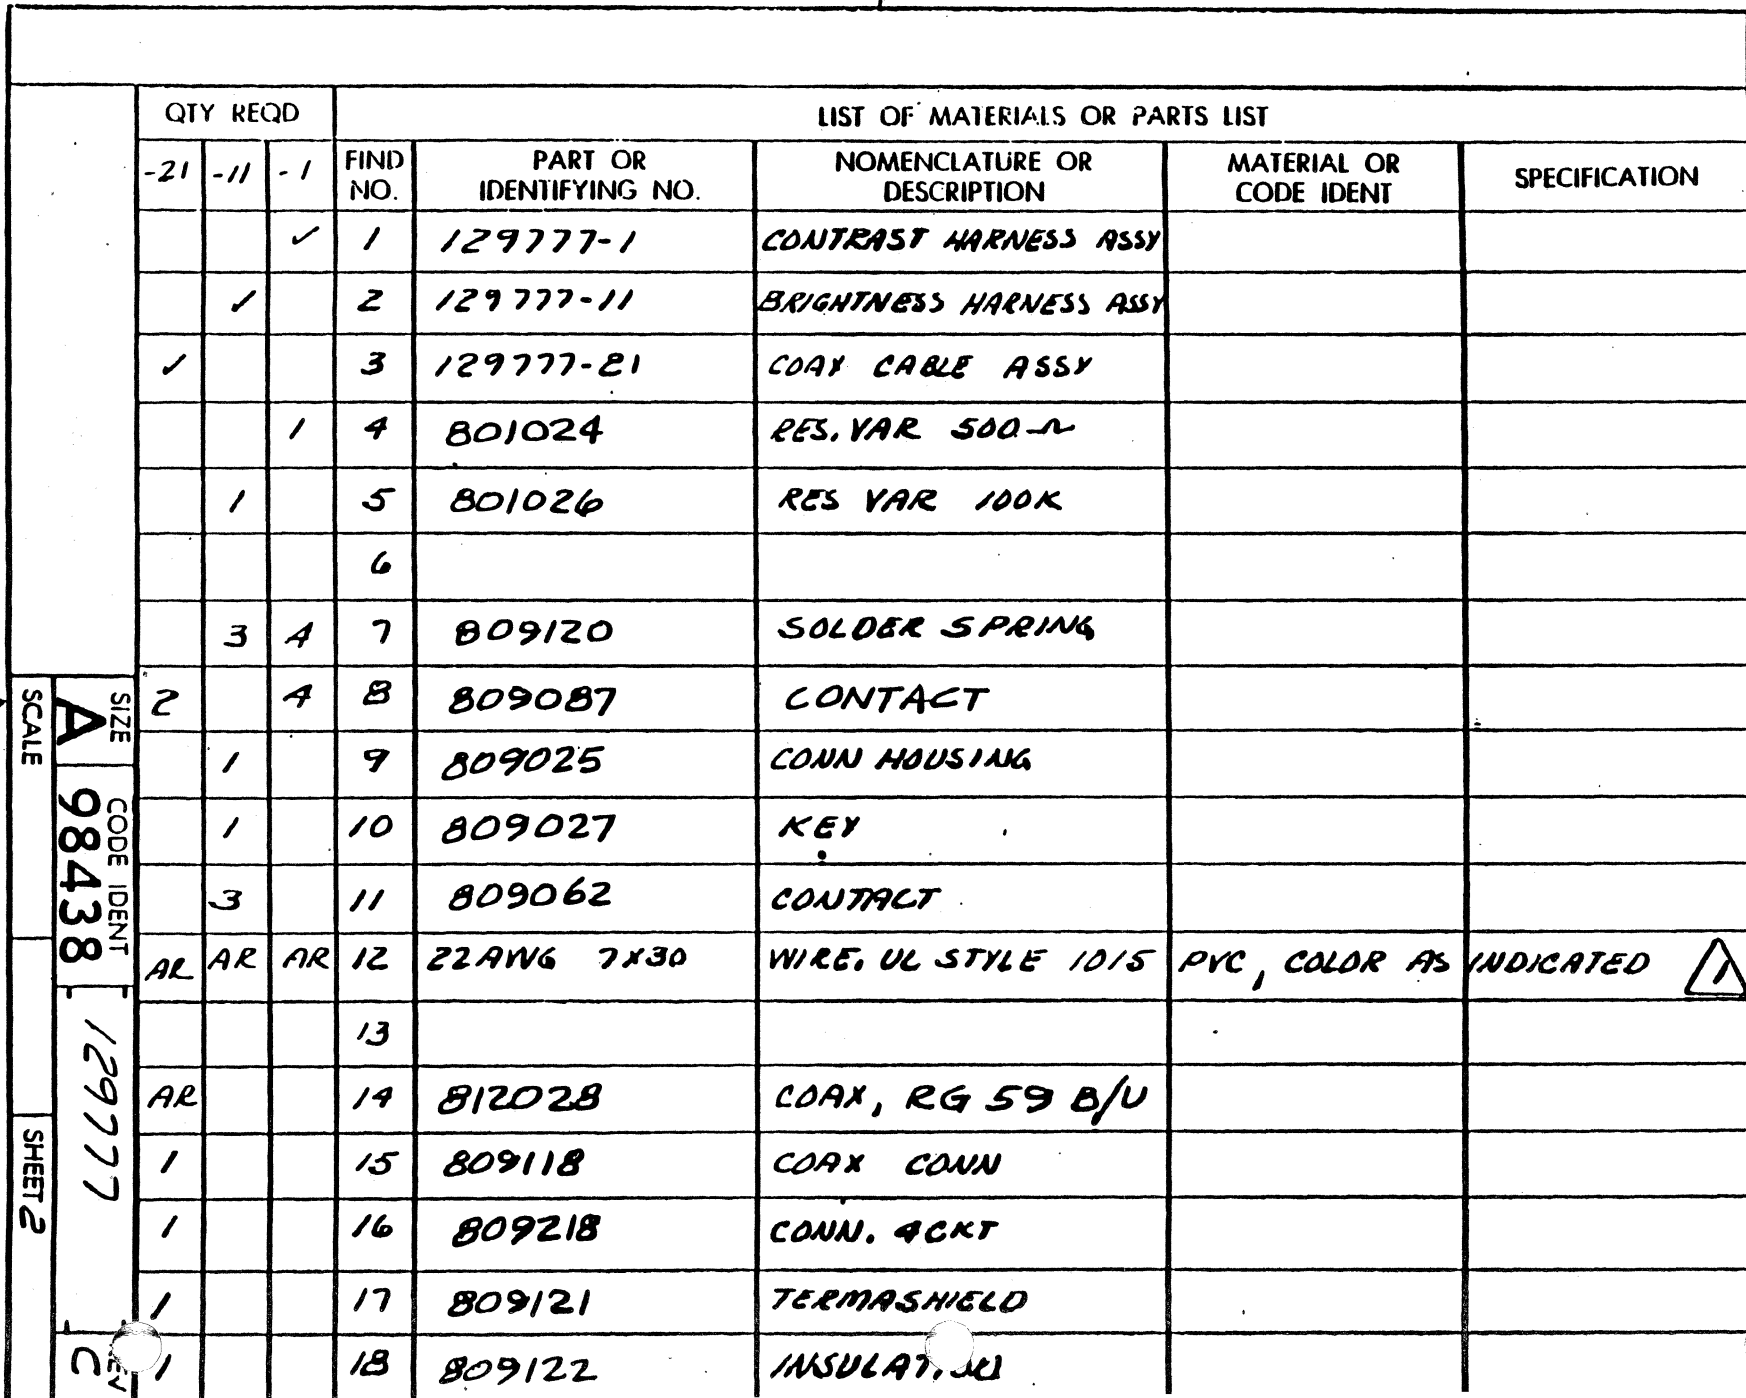 QTY REQD LIST OF MATERIALS OR PARTS LIST
-21 -11 -1 FIND NO. PART OR IDENTIFYING NO. NOMENCLATURE OR DESCRIPTION MATERIAL OR CODE IDENT SPECIFICATION
✓ 1 129777-1 CONTRAST HARNESS ASSY
✓ 2 129777-11 BRIGHTNESS HARNESS ASSY
✓ 3 129777-21 COAX CABLE ASSY
1 4 801024 RES. VAR 500Ω
1 5 801026 RES VAR 100K
6
3 4 7 809120 SOLDER SPRING
2 4 8 809087 CONTACT
1 9 809025 CONN HOUSING
1 10 809027 KEY
3 11 809062 CONTACT
AR AR AR 12 22 AWG 7X30 WIRE. UL STYLE 1015 PVC, COLOR AS INDICATED 1
13
AR 14 812028 COAX, RG 59 B/U
1 15 809118 COAX CONN
1 16 809218 CONN. 4CKT
1 17 809121 TERMASHIELD
1 18 809122 INSULATION
SIZE A CODE IDENT 98438 129777 REV C
SCALE SHEET 2